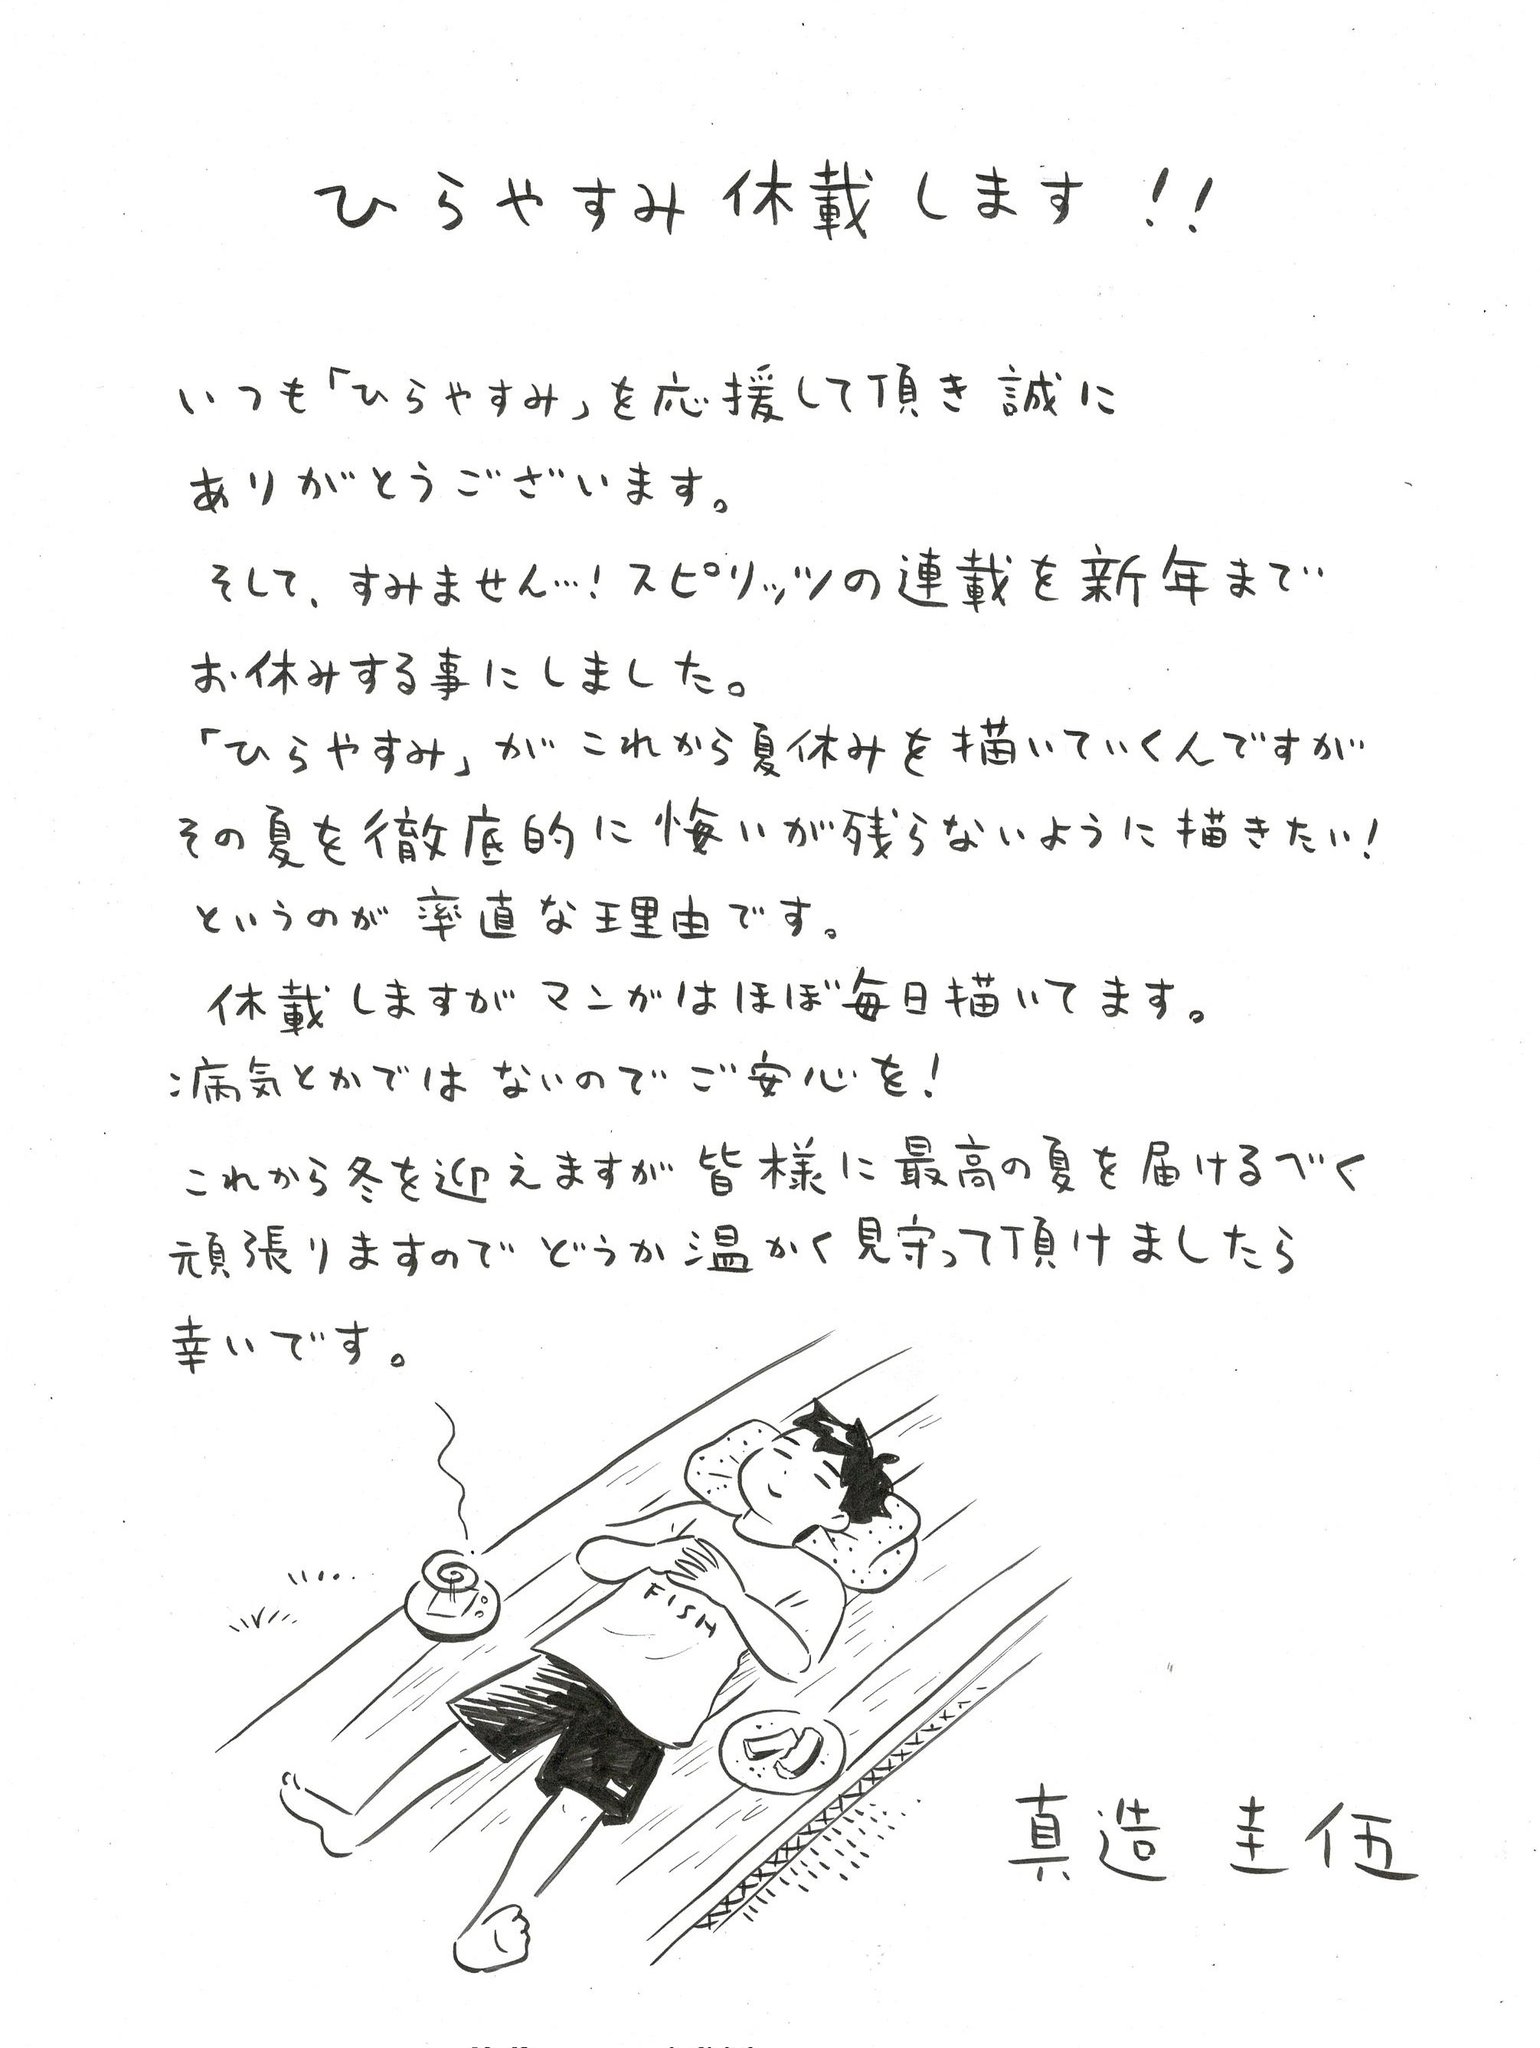 ひらやすみ 休載します!!
いつも「ひらやすみ」を応援して頂き 誠に
ありがとうございます。
そして、すみません…! スピリッツの連載を新年まで
お休みする事にしました。
「ひらやすみ」が これから夏休みを描いていくんですが
その夏を徹底的に 悔いが残らないように描きたい!
というのが 率直な理由です。
休載しますが マンガはほぼ毎日描いてます。
病気とかでは ないのでご安心を!
これから冬を迎えますが 皆様に最高の夏を届けるべく
頑張りますので どうか温かく見守って頂けましたら
幸いです。
FISH
真造 圭伍